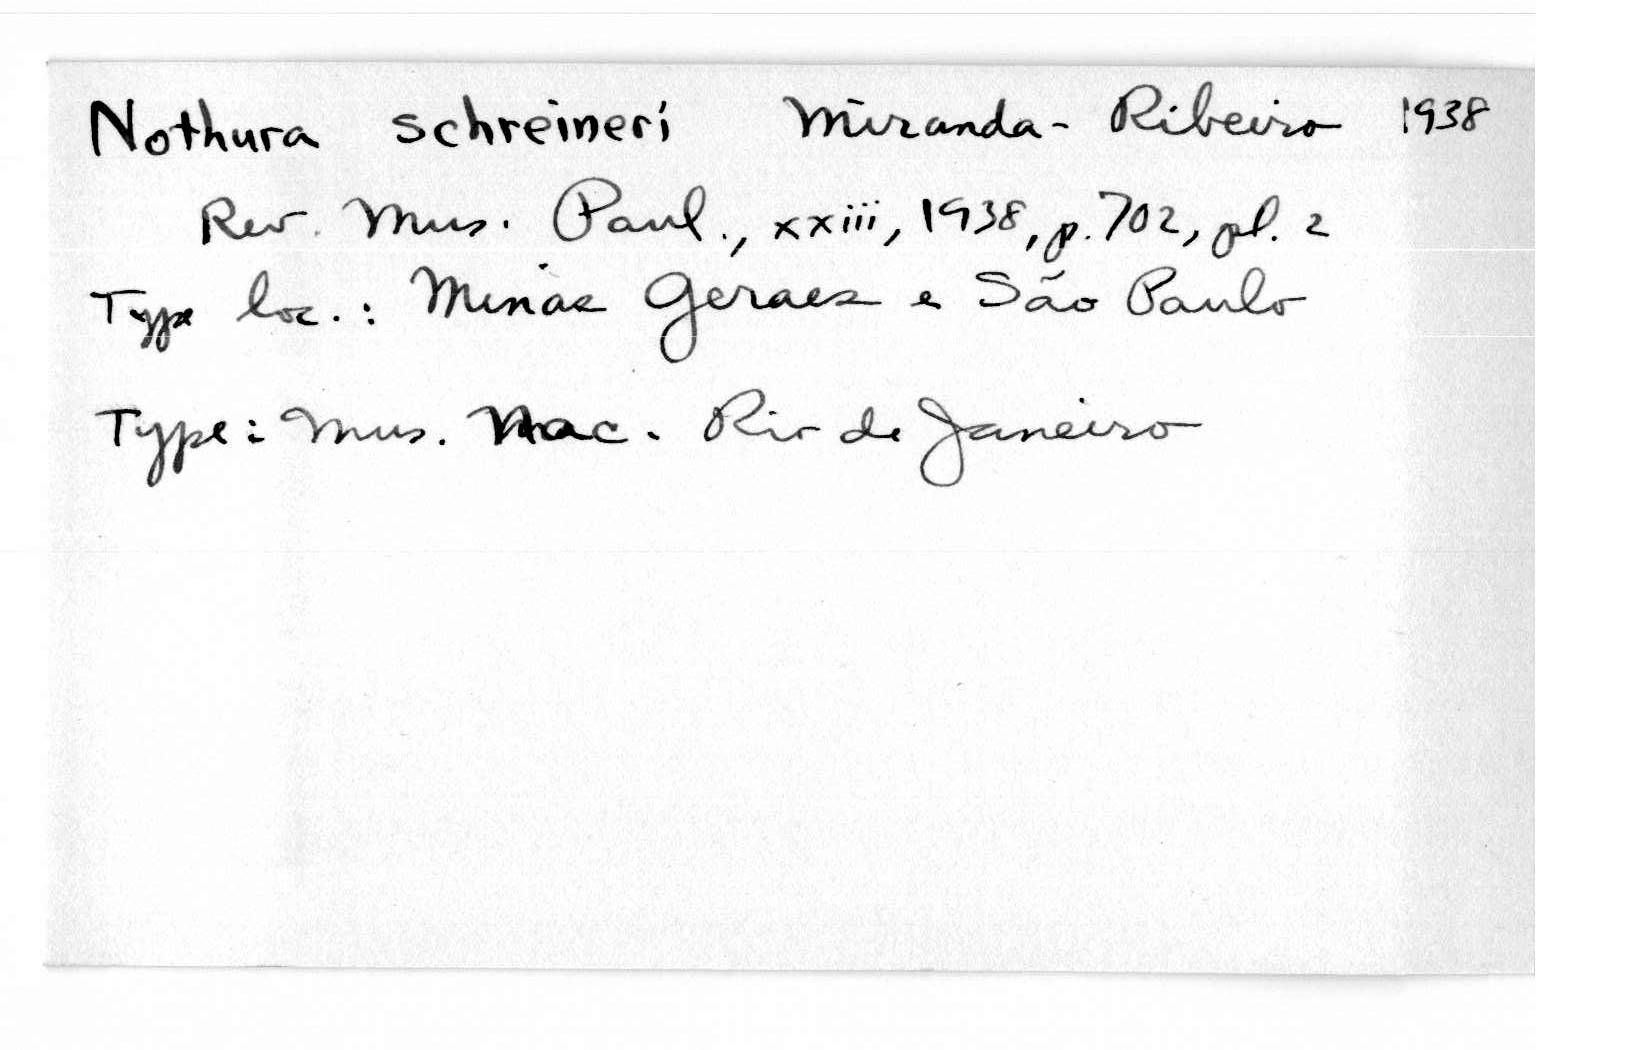 Nothura schreineri Miranda-Ribeiro 1938
Rev. Mus. Paul., xxiii, 1938, p. 702, pl. 2
Type loc.: Minas Geraes e São Paulo
Type: Mus. Nac. Rio de Janeiro